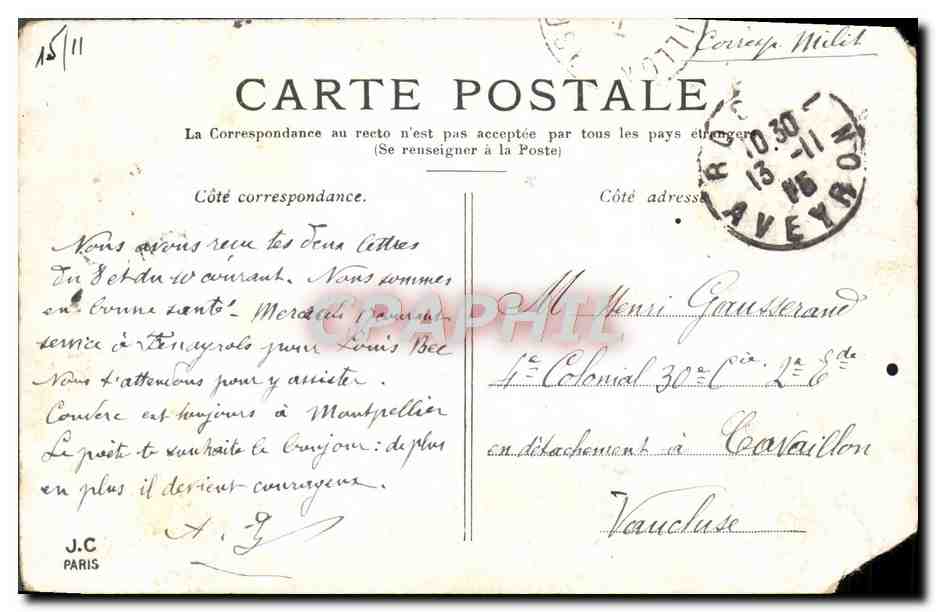 15/11
Corresp. Milit
CARTE POSTALE
La Correspondance au recto n'est pas acceptée par tous les pays étrangers
(Se renseigner à la Poste)
10.30
13 -11
AVEYRON
Côté correspondance.
Côté adresse
Nous avons reçu tes deux lettres
du 8 et du 10 courant. Nous sommes
en bonne santé. Mercredi
service à Tenayrols pour Louis Bec
Nous t'attendons pour y assister.
Couderc est toujours à Montpellier
Le poète te souhaite le bonjour : de plus
en plus il devient courageux.
A. G
M Henri Gausserand
4e Colonial 30e Cie 2e Ede
en détachement à Cavaillon
Vaucluse
CPAPHIL
J.C
PARIS